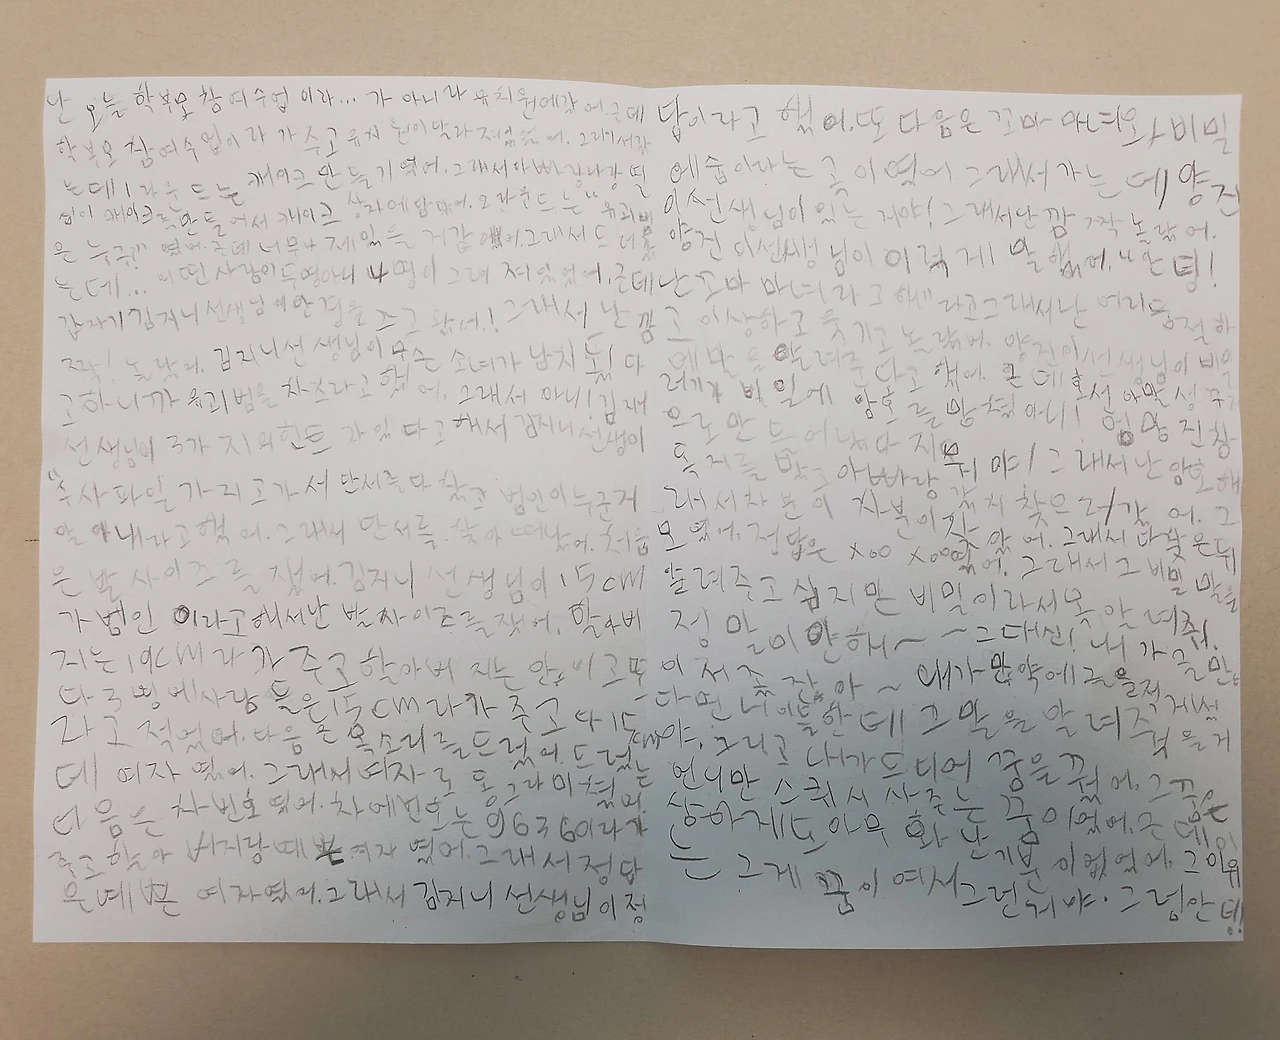 난 오늘 학부모 참여수업 이라... 가 아니라 유치원에갔어. 근데
학부모 참여수업이라 가주고 유치원이 달라져있었어. 그래서갔
는데 1라운드는 케이크 만들기였어. 그래서아빠랑나랑 열
심이 케이크를만들어서 케이크 상자에담았어. 2라운드는 "유괴범
은 누구?" 였어. 근데 너무나 재있을 거같앴어. 그래서
는데... 어떤 사람이 두명아니 4명이 그려져있었어. 근데
갑자기 김지니선생님이안경을 쓰고 왔어! 그래서 난 깜
짝! 놀랐어. 김지니선생님이무슨 소녀가 납치 다
고하니까 유괴범을 차즈라고했어. 그래서 아니! 김지니
선생님이 3가지의힌트가있다고 해서 김지니선생이
"수사파일 가지고가서 단서를다 찾고 범인이누군지
알아내라고 했어. 그래서 단서를 찾아 떠났어. 처음
은 발 사이즈를 쟀어. 김지니 선생님이 15cm
가 범인 이라고해서난 발싸이즈를쟀어. 할아버
지는 19cm라가주고 할아버지는 안이고또
다른 세사람들은 15cm라가주고 다 15cm
라고 적었어. 다음은 목소리를드렸어. 드렸는
데 여자였어. 그래서 여자로 동그라미쳤어.
다음은 차번호였어. 차에번호는 9639이라가
주고 할아버지랑 예쁜 여자였어. 그래서 정답
은 예쁜 여자였어. 그래서 김지니 선생님이정
답이라고 했어. 또 다음은 꼬마 마녀와 비밀
에숲이라는 곳이였어. 그래서 가는데 양건
이선생님이있는거야! 그래서난 깜짝 놀랐어.
양건 이선생님이 이렇게! 말했어. "안녕!
난 꼬마 마녀라고해" 라고 그래서난 어리둥절하
고 이상하고 웃기고 놀랐어. 양건이선생님이 비밀
에말을 알려준다고했어. 근데
비밀에 암호를맞 아니! 엄망진창
으로 만드어놨다지 뭐야! 그래서 난 암호해
독지를 받고 아빠랑 같치 찾으러갔어. 그
래서차분이 차분이찾았어. 그래서 다찾은뒤
모였어. 정답은 x00 x00였어. 그래서 그 비밀말을
알려주고 싶지만 비밀이라서못알려줘.
정말미안해~ ~그대신! 내가글만
이적 잖아~ 내가만약에글을적게썼
다면 너이들한테 그말을알려주 을거
야. 그리고 내가드디어 꿈을꿨어. 그꿈은
언니만 스퀴시 사주는 꿈이었어. 근데이
상하게도아무 화난기분이없었어. 그이유
는 그게 꿈이여서그런거야. 그럼안녕!